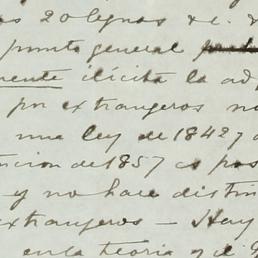 20 leguas &c.
punto general
mente ilícita la ad
por extrangeros no
una ley de 1842?
cion de 1857 es pos
y no hace distin
extranjeros — Hay
en la teoria y el